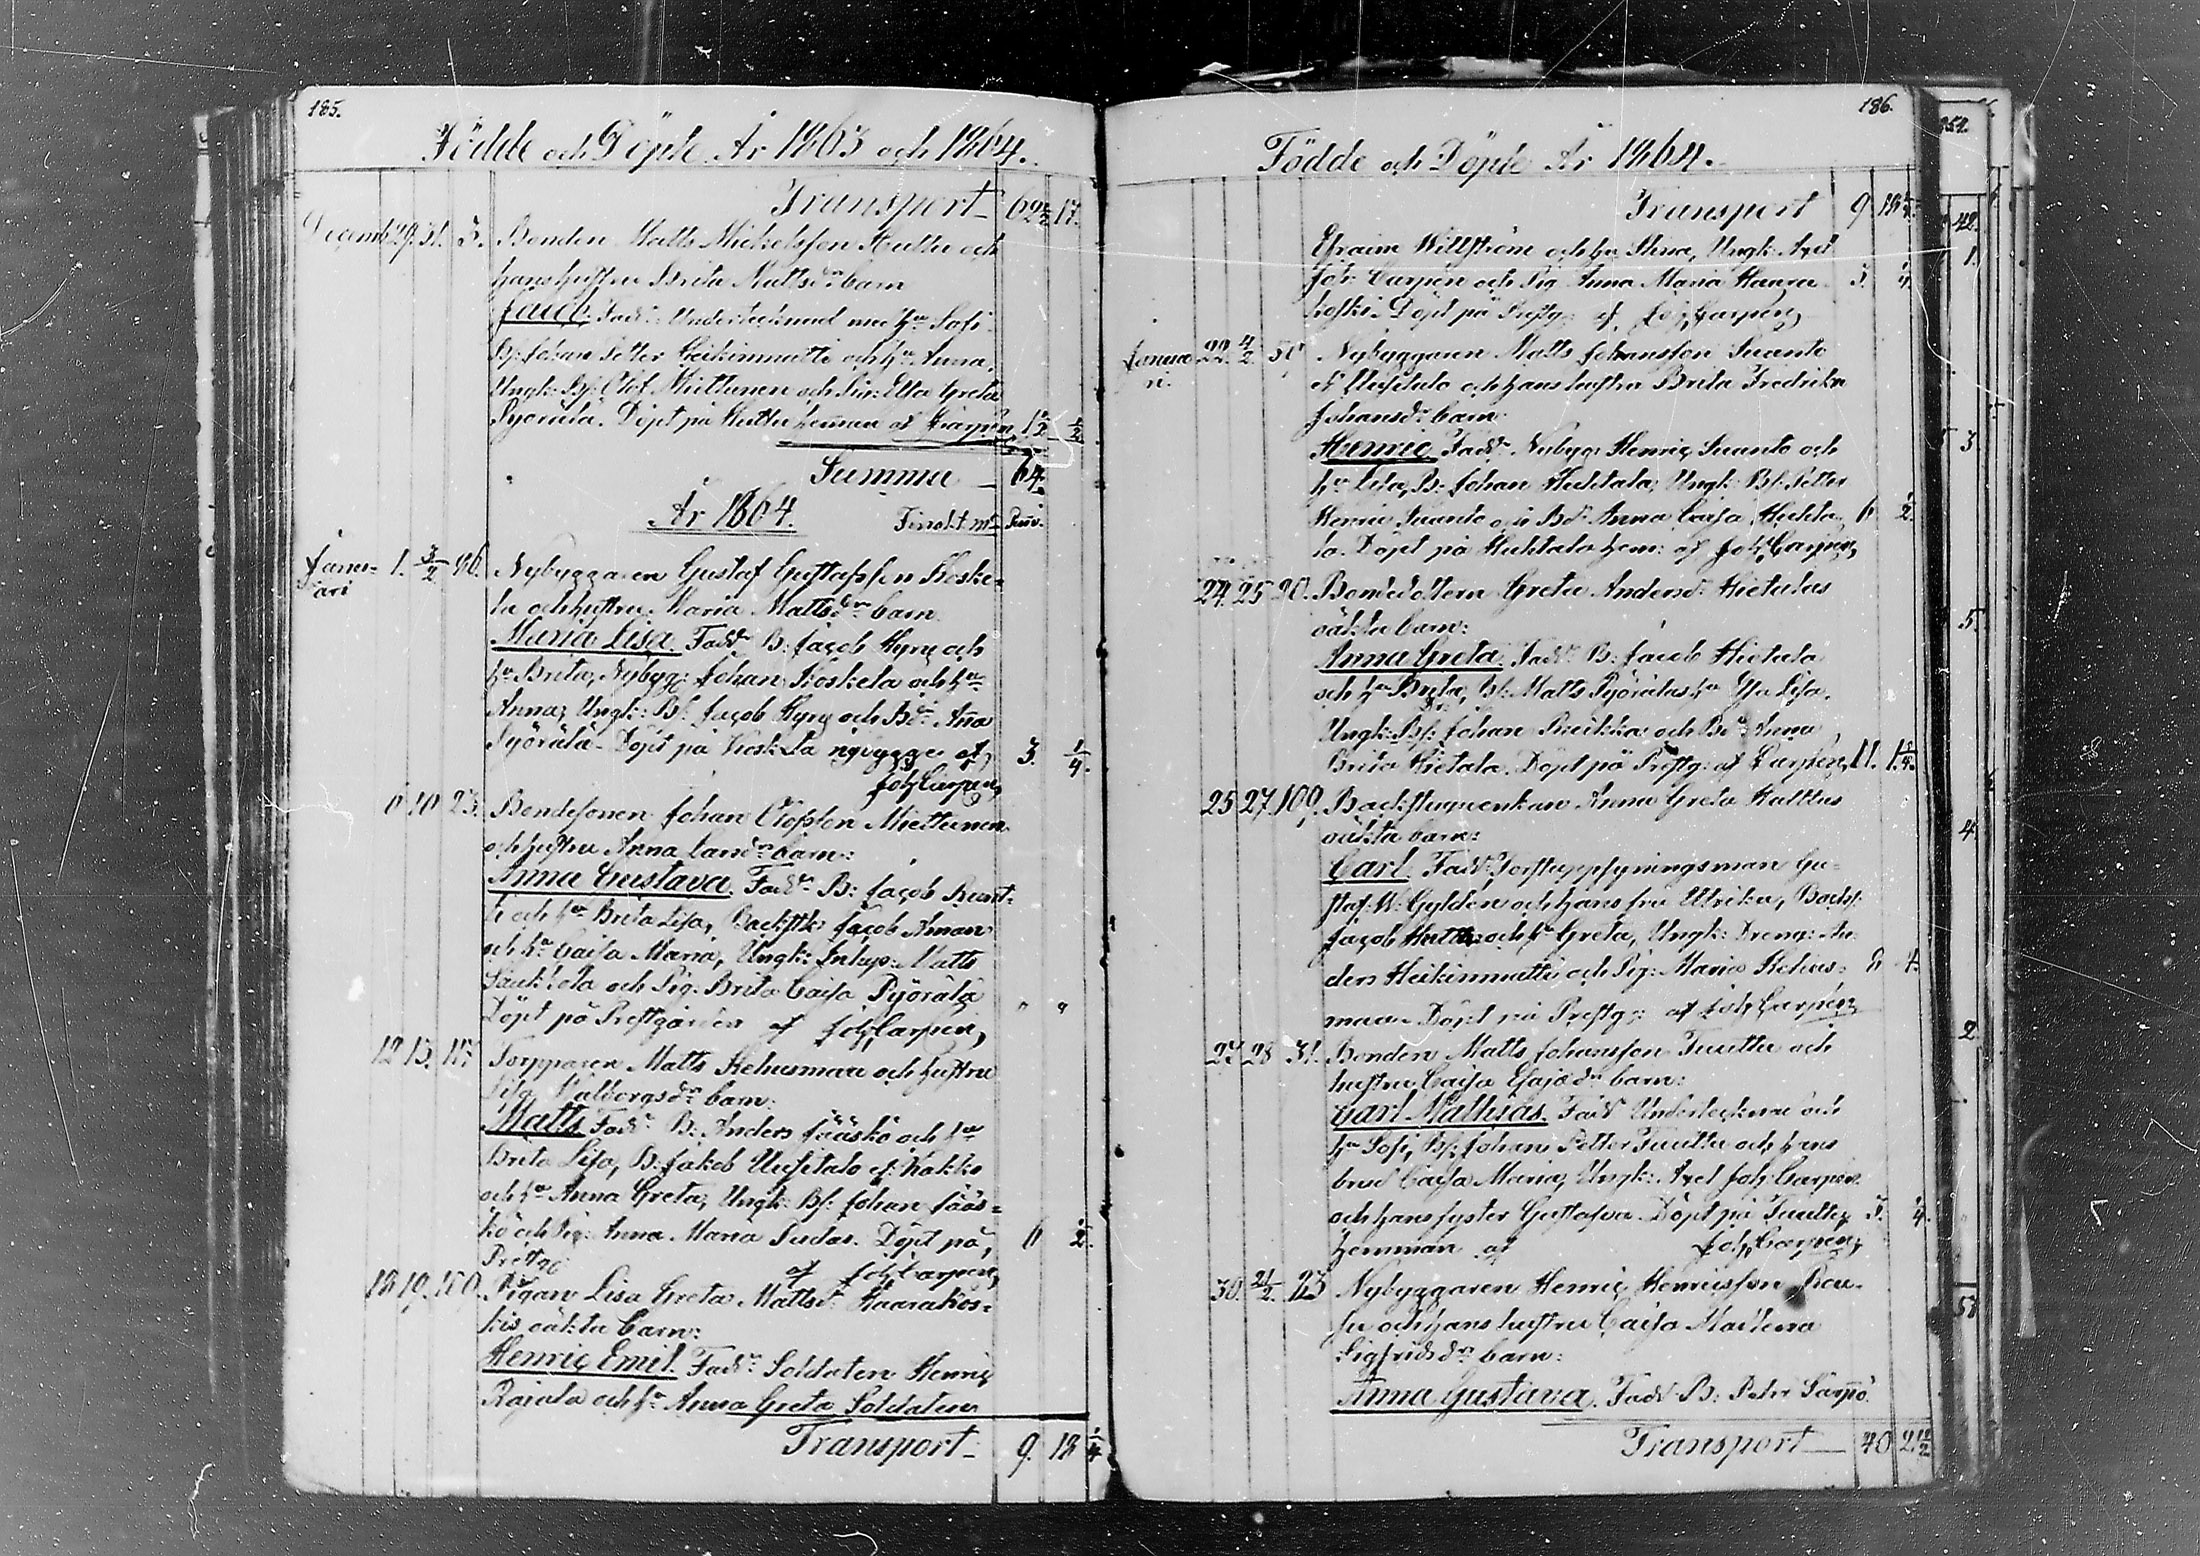 185.
Födde och Döpte År 1863 och 1864.
Transport 62 17.
Decemb. 29. 31. 5. Bonden Matts Mickelsson Huttu och
hans hustru Brita Mattsdr barn
Jacob. Fadd: Undertecknad med hu Sofi
Bs: Johan Petter Heikinmatti och hu Anna,
Ungk: Bs: Olof Miettunen och Elsa Greta
Pyörälä. Döpt på Huttu hemman af Carpén,
Summa 64.
År 1864. Finskt mt
Janu- 1. 3/2 46. Nybyggaren Gustaf Gustafsson Koske-
ari
la och hustru Maria Mattsdr barn
Maria Lisa. Fadd: B: Jacob Hyry och
hu Brita, Nybyg: Johan Koskela och hu
Anna; Ungk: Bs: Jacob Hyry och Bdr Anna
Pyörälä. Döpt på Koskela nybygge af 3. 1/4.
Joh Carpén,
10. 23. Bondesonen Johan Olofsson Miettunen
och hustru Anna barn:
Anna Gustava. Fadd: B: Jacob
och hu Brita Lisa, Backstk: Jacob Aman
och hu Caisa Maria, Ungk: Inhys: Matts
och Pig: Brita Caisa Pyörälä
Döpt på Prestgården af Joh Carpén, " "
12. 13. Torpparen Matts Kehusmaa och hustru
Lisa Walborgsdr barn:
Matts. Fadd: B: Anders Jääskö och hu
Brita Lisa, B: Jakob Uusitalo el: Kakko
och hu Anna Greta; Ungk: Bs: Johan Jääs-
kö och Pig: Anna Maria Pudas. Döpt på 6 1/2.
Prestg: af Joh Carpén,
18. 19. Pigan Lisa Greta Mattsd: Haarakos-
kis oäkta barn:
Henric Emil. Fadd: Soldaten Henric
Rajala och hu Anna Greta Soldaten
Transport 9. 18 1/4
186.
Födde och Döpte År 1864.
Transport 9 18 1/4.
Efraim Willström och hu Stina, Ungk: Axel
Joh: Carpén och Pig Anna Maria Haara- 3. 1/4.
koski. Döpt på Prestg: af Joh Carpén,
Janua- 22. 4/2. Nybyggaren Matts Johansson Suanto
ri.
el Uusitalo och hans hustru Brita Fredrika
Johansdr barn:
Henric. Fadd: Nybyg: Henric Suanto och
hu Lisa, B: Johan Huhtala; Ungk: Bs: Petter
Henric Suanto och Bdr Anna Caisa Huhta- 6 1/2.
la. Döpt på Huhtala hem: af Joh Carpén,
24. 25 20. Bondedottern Greta Andersd: Hietalas
oäkta barn:
Anna Greta. Fadd: B: Jacob Hietala
och hu Brita, Bs: Matts Pyöräläs hu Lisa,
Ungk: Bs: Johan och Bdr Anna
Brita Hietala. Döpt på Prestg: af Carpén,
25 27. 109. Backstuguenkan Anna Greta Kalttas
oäkta barn:
Carl. Fadd: Forstuppsyningsman Gu-
staf W: Gyldén och hans fru Ulrika, Backst:
Jacob och hu Greta, Ungk: Dreng: An-
ders Heikinmatti och Pig: Maria Kehus-
maa. Döpt på Prestg: af Joh Carpén,
27 28 31. Bonden Matts Johansson Tuuttu och
hustru Caisa Esajædr barn:
Carl Mathias. Fadd Undertecknad och
hu Sofi, Bs: Johan Petter Tuuttu och hans
brud Caisa Maria; Ungk: Axel Joh Carpén
och hans syster Gustafva. Döpt på Tuuttu 3. 1/4.
hemman af Joh Carpén,
30. 21/2. 23 Nybyggaren Henric Henricsson
och hans hustru Caisa
Sigfridsdr barn:
Anna Gustava. Fadd: B: Petter Särppö.
Transport 40 2 1/2